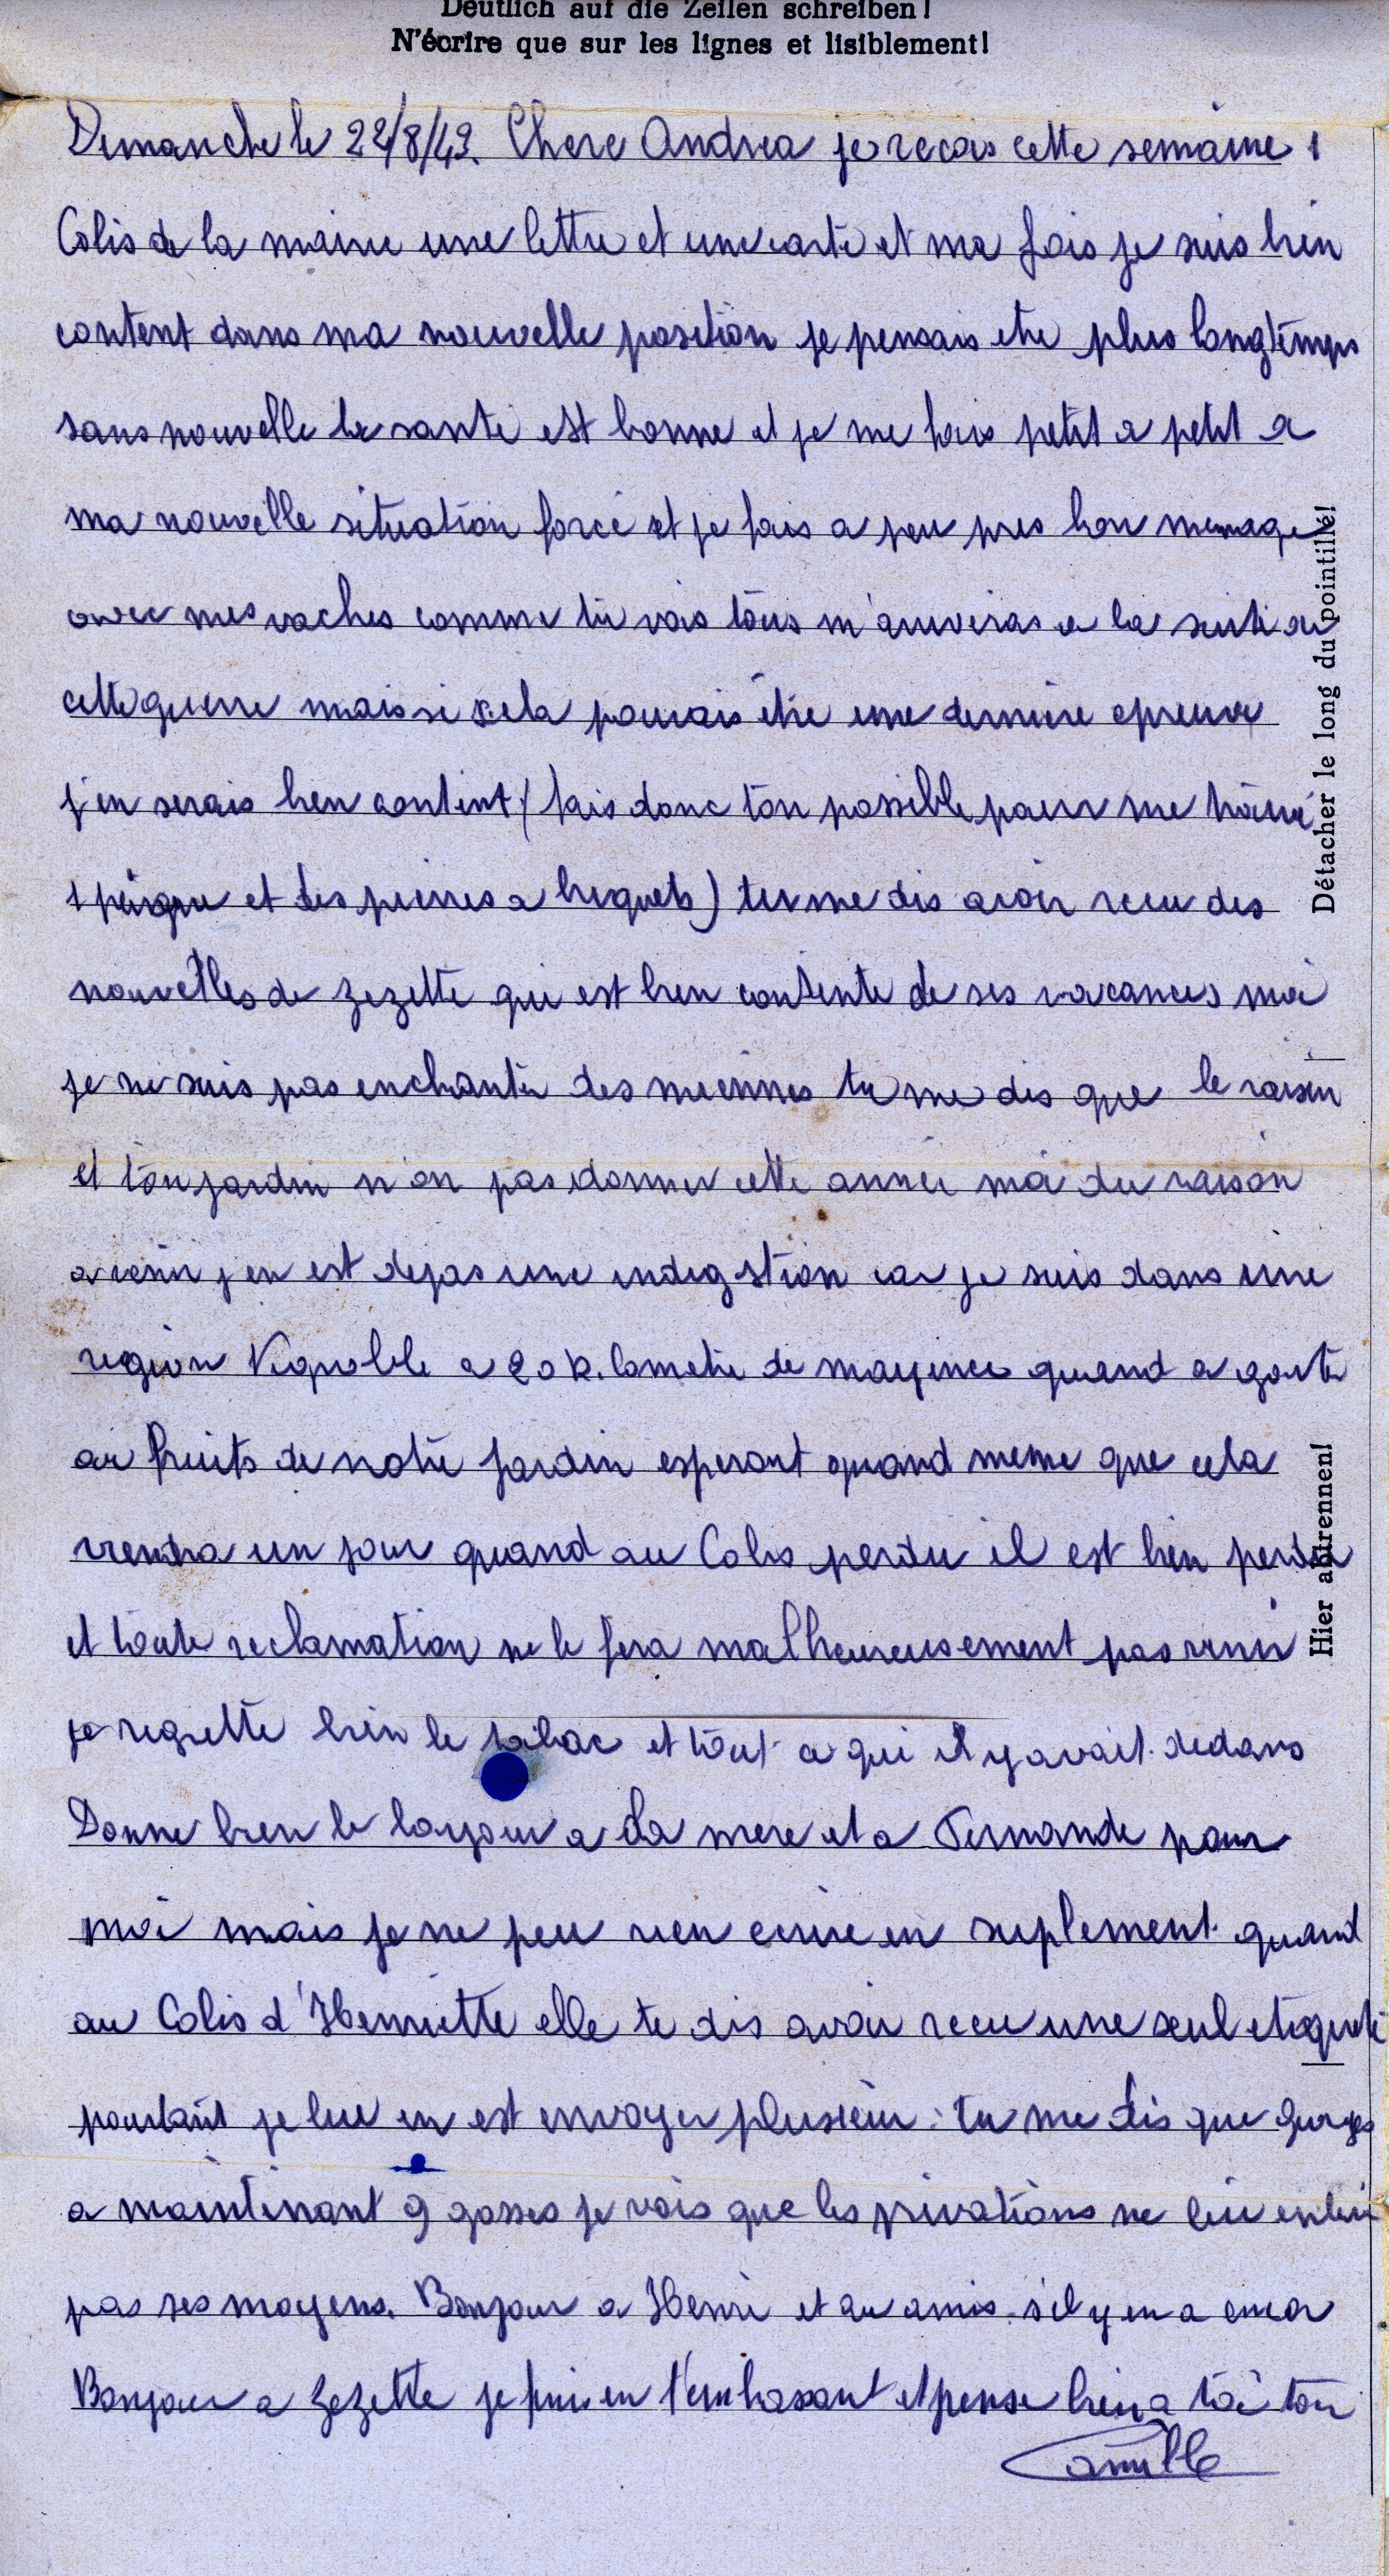 Deutlich auf die Zeilen schreiben!
N'écrire que sur les lignes et lisiblement!
Dimanche le 22/8/43. Chere Andrea je recois cette semaine 1
Colis de la mairie une lettre et une carte et ma fois je suis bien
content dans ma nouvelle position je pensais etre plus longtemps
sans nouvelle la santé est bonne et je me fais petit a petit a
ma nouvelle situation forcé et je fais a peu pres bon menage
avec mes vaches comme tu vois tous m'arriveras a la suite de
cette guerre mais si cela pouvais être une derniere epreuve
j'en serais bien content (fais donc ton possible pour me trouvé
1 peigne et des pierres a briquets) tu me dis avoir recu des
nouvelles de Zezette qui est bien contente de ses vacances moi
je ne suis pas enchanté des miennes tu me dis que le raisin
et ton jardin n'on pas donner cette année moi du raison
a venir j en est dejas une indigstion car je suis dans une
region Vignoble a 20 k. lometre de mayence quand a gouté
au fruits de notre jardin esperant quand meme que cela
viendra un jour quand au Colis perdu il est bien perdu
et toute reclamation ne le fera malheureusement pas venir
je regrette bien le tabac et tout ce qui il y avait dedans
Donne bien le bonjour a ta mere et a Fernande pour
moi mais je ne peu rien ecrire en suplement quand
au Colis d'Henriette elle te dis avoir recu une seul etiquete
pourtant je lui en est envoyer plusieur. tu me dis que georges
a maintenant 9 gosses je vois que les privations ne lui enleve
pas ses moyens. Bonjour a Henri et au amis s'il y en a encor
Bonjour a Zezette je finis en t'embrasant et pense bien a toi ton
Camille
Détacher le long du pointillé!
Hier abtrennen!